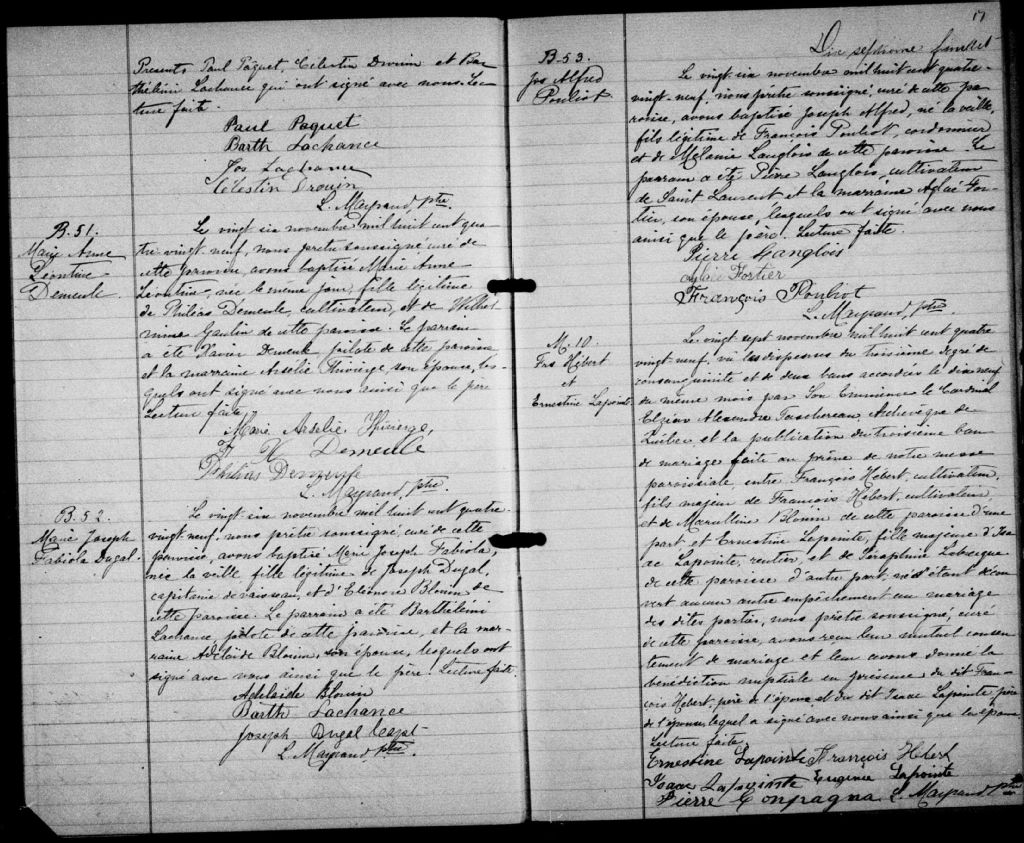 Presents Paul Paquet, Célestin Drouin et Bar
thélémi Lachance qui ont signé avec nous. Lec
ture faite.
Paul Paquet
Barth Lachance
Jos Lachance
Célestin Drouin
L. Mayrand, ptre.
B. 51.
Marie Anne
Léontine
Demeule.
Le vingt six novembre mil huit cent qua
tre-vingt-neuf, nous prêtre soussigné curé de
cette paroisse, avons baptisé Marie Anne
Léontine, née le même jour, fille légitime
de Philéas Demeule, cultivateur, et de Wilhel
mine Gaulin de cette paroisse. Le parrain
a été Xavier Demeule pilote de cette paroisse
et la marraine Arsélie Thivierge, son épouse, les-
quels ont signé avec nous ainsi que le père
Lecture faite.
Marie Arselie Thivierge,
F X Demeulle
Philias Demeule
L. Mayrand, ptre.
B. 52.
Marie Joseph
Fabiola Dugal.
Le vingt six novembre mil huit cent quatre
vingt-neuf, nous prêtre soussigné, curé de cette
paroisse, avons baptisé Marie Joseph Fabiola,
née la veille fille légitime de Joseph Dugal,
capitaine de vaisseau, et d'Eléonore Blouin de
cette paroisse. Le parrain a été Barthélémi
Lachance, pilote de cette paroisse, et la mar-
raine Adélaïde Blouin, son épouse, lesquels ont
signé avec nous ainsi que le père. Lecture faite.
Adelaide Blouin
Barth Lachance
Joseph Dugal
L. Mayrand, ptre
17
Dix septième feuillet
B-53.
Jos Alfred
Pouliot
Le vingt six novembre mil huit cent quatre-
vingt-neuf, nous prêtre soussigné, curé de cette pa
roisse, avons baptisé Joseph Alfred, né la veille,
fils légitime de François Pouliot, cordonnier
et de Mélanie Langlois de cette paroisse. Le
parrain a été Pierre Langlois, cultivateur
de Saint Laurent et la marraine Aglaé For-
tier, son épouse, lesquels ont signé avec nous
ainsi que le père. Lecture faite.
Pierre Langlois
Aglaé Fortier
François Pouliot
L. Mayrand, ptre.
M. 10.
Frs Hébert
et
Ernestine Lapointe.
Le vingt sept novembre mil huit cent quatre
vingt neuf, vu les dispenses du troisième degré de
consanguinité et de deux bans accordées le dix neuf
du même mois par Son Eminence le Cardinal
Elzéar Alexandre Taschereau Archevêque de
Québec et la publication du troisième ban
de mariage faite au prône de notre messe
paroissiale, entre François Hébert, cultivateur,
fils majeur de François Hébert, cultivateur,
et de Marcelline Blouin de cette paroisse d'une
part et Ernestine Lapointe, fille majeure d'Isa
ac Lapointe, rentier, et de Séraphine Labrecque
de cette paroisse d'autre part, ne s'étant décou
vert aucun autre empêchement au mariage
des dites parties, nous prêtre soussigné, curé
de cette paroisse, avons reçu leur mutuel consen
tement de mariage et leur avons donné la
bénédiction nuptiale en présence du dit Fran-
çois Hébert, père de l'époux et du dit Isaac Lapointe, père
de l'épouse, lequel a signé avec nous ainsi que les époux
Lecture faite.
Ernestine Lapointe François Hébert
Isaac Lapointe Eugénie Lapointe
Pierre Conpagna L. Mayrand ptre